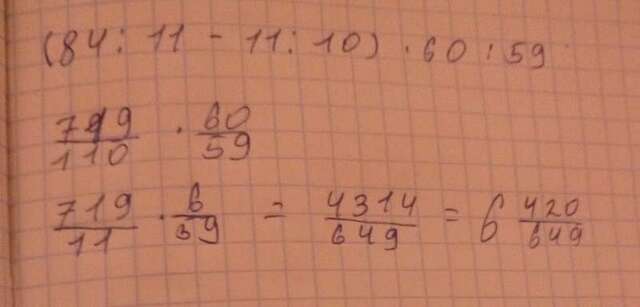 (84 : 11 - 11 : 10) · 60 : 59
719/110 · 60/59
719/11 · 6/59 = 4314/649 = 6 420/649